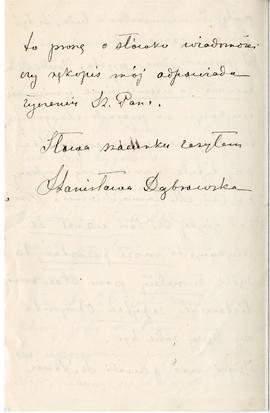 to proszę o słówko wiadomości
czy rękopis mój odpowiada
życzeniu Sz. Pana.
Słowa szacunku zasyłam
Stanisława Dąbrowska